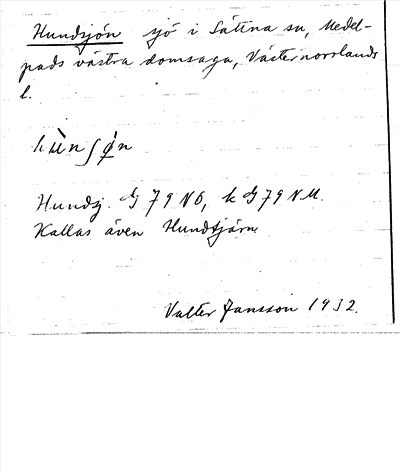 Hundsjön sjö i Sättna sn, Medel-
pads västra domsaga, Västernorrlands
l.
hùnʃǿn
Hundsj. G 79 NÖ, k G 79 NM.
Kallas även Hundtjärn
Valter Jansson 1932.